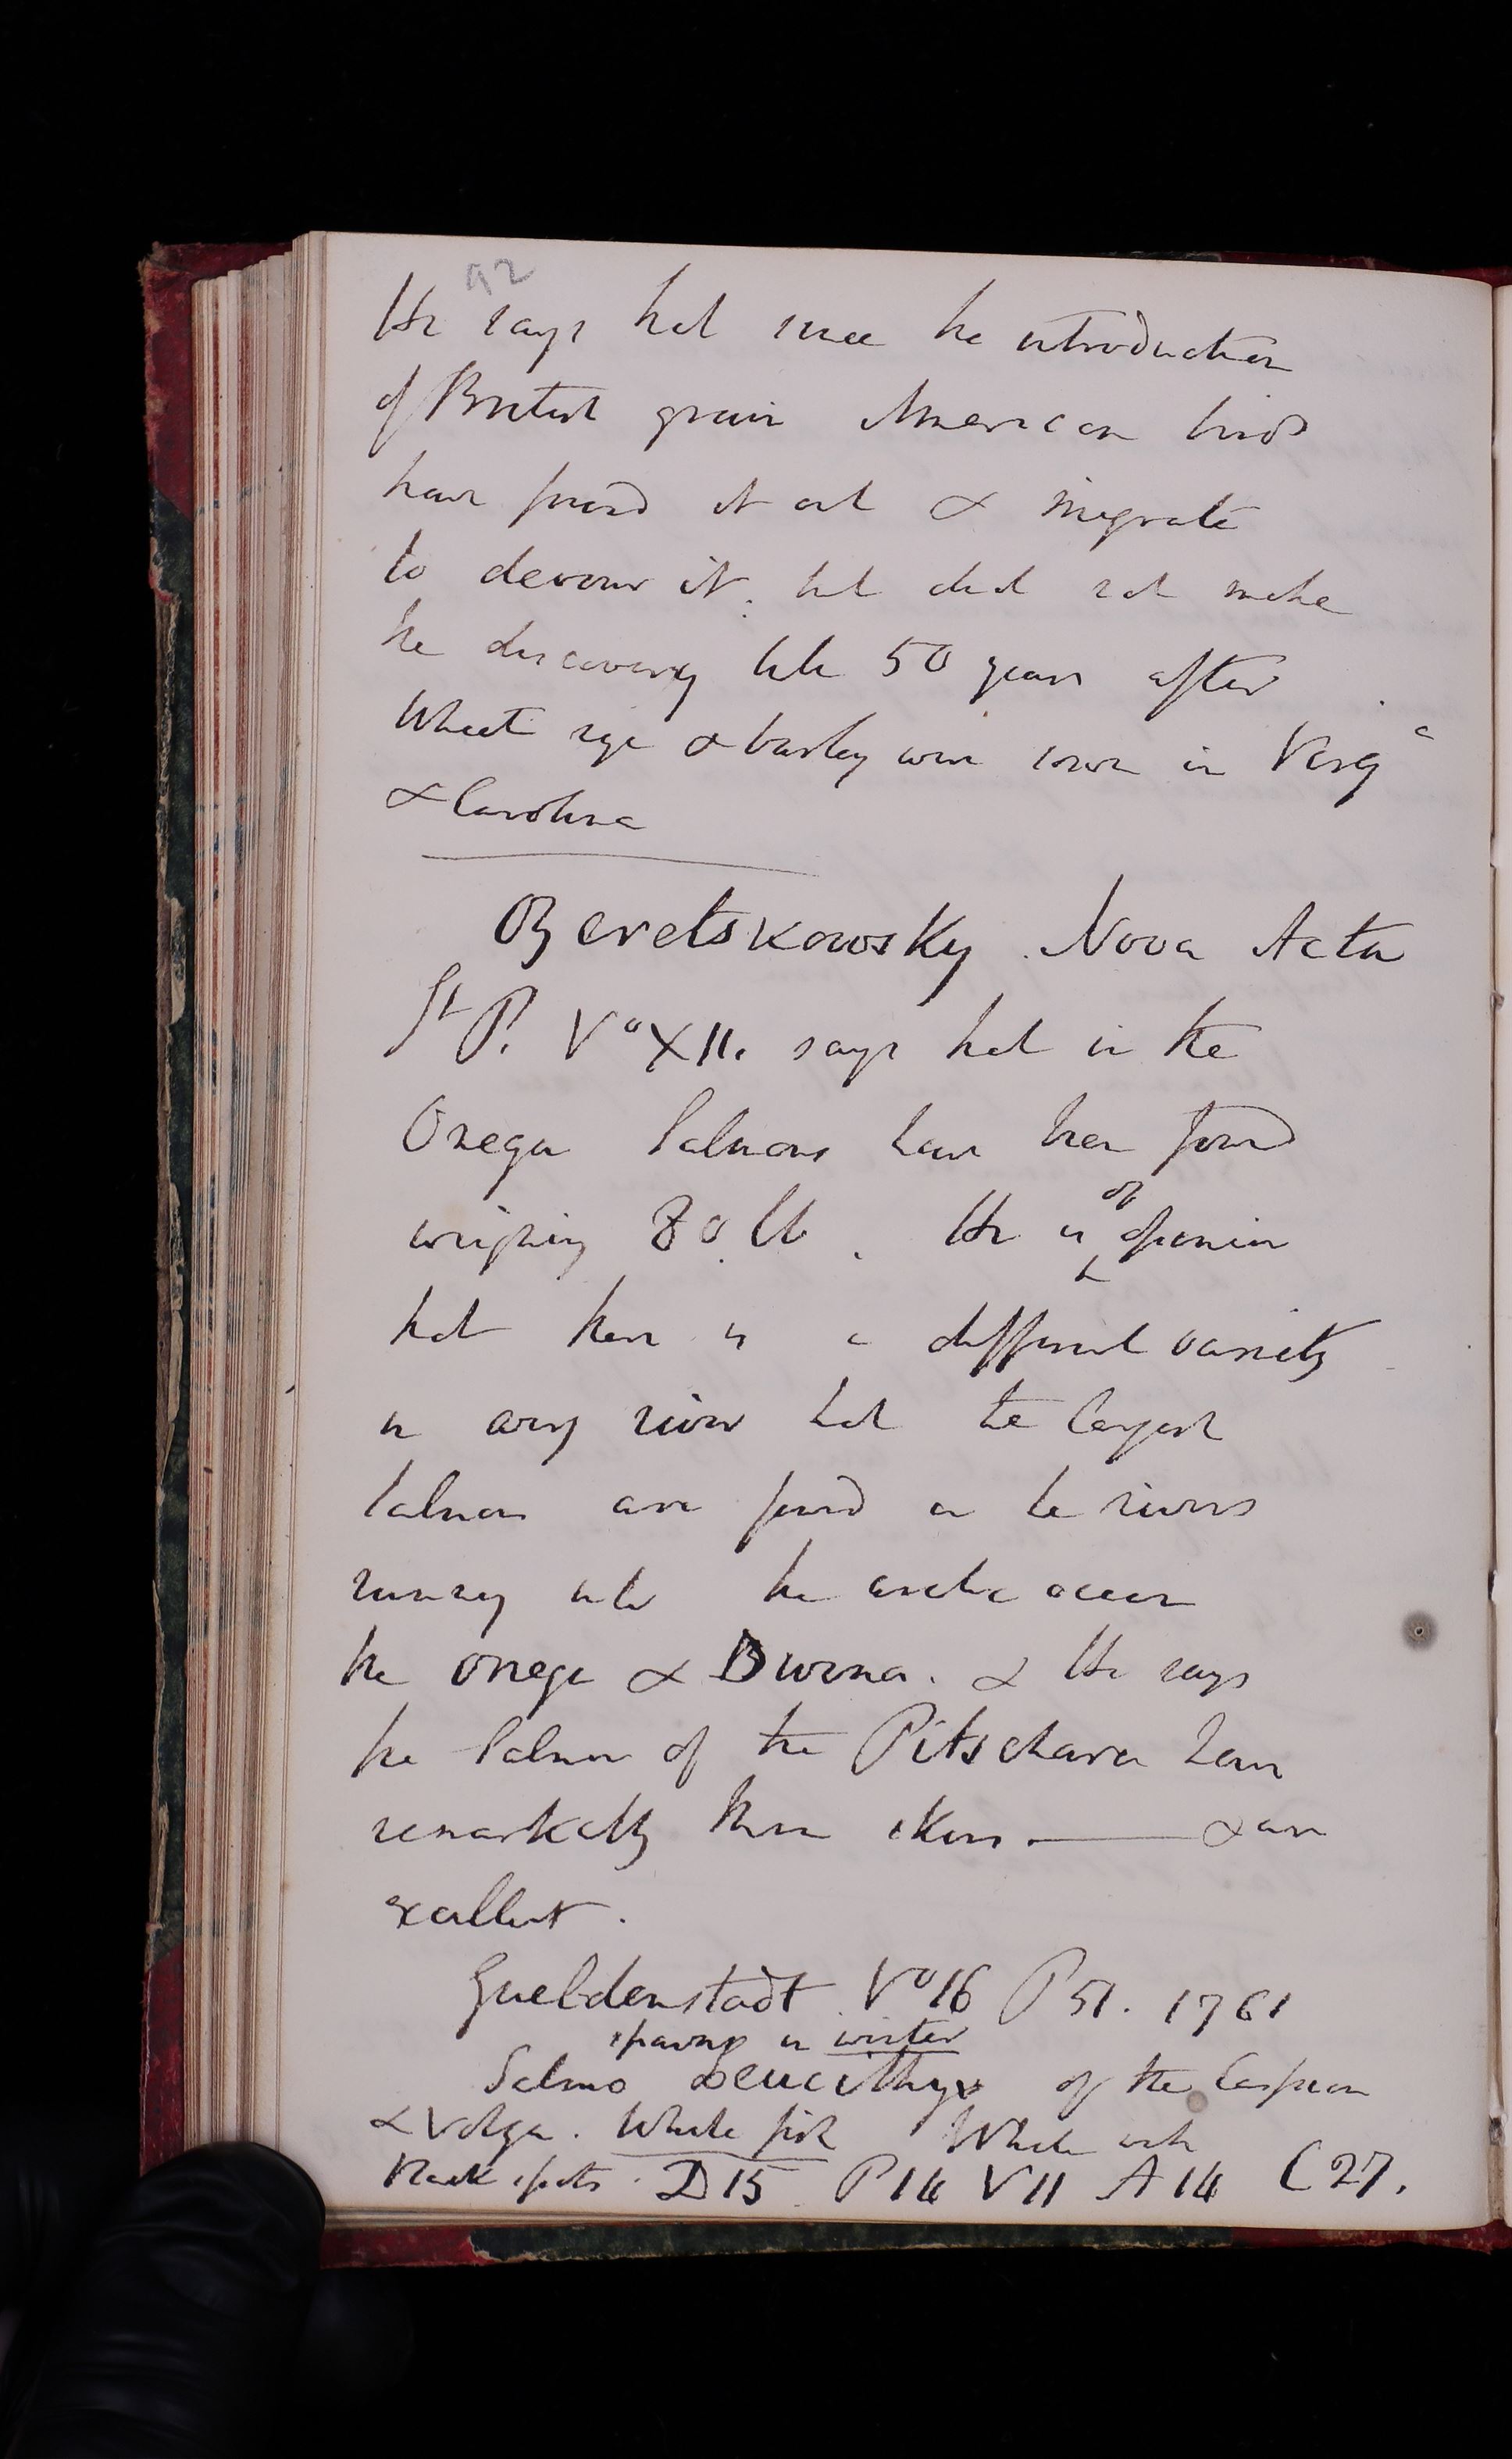 92
He says that since the introduction
of British grain American birds
have found it out & migrate
to devour it. but did not make
the discovery till 50 years after
Wheat rye & barley were sown in Virg<sup>a</sup>
& Carolina
Ozeretskowsky Nova Acta
St P. V° XII. says that in the
Onega Salmons have been found
weighing 80 lb. He is of opinion
that there is a different variety
in every river that the largest
salmon are found in the rivers
running into the arctic ocean
the Onega & Dwina. & He says
the Salmon of the Pitschara have
remarkably thin skins. — & are
excellent.
Gueldenstadt V° 16 P 51. 1761
spawns in winter
Salmo Leucithys of the Caspian
& Volga. White fish White with
black spots. D 15 P 14 V 11 A 14 C 27.